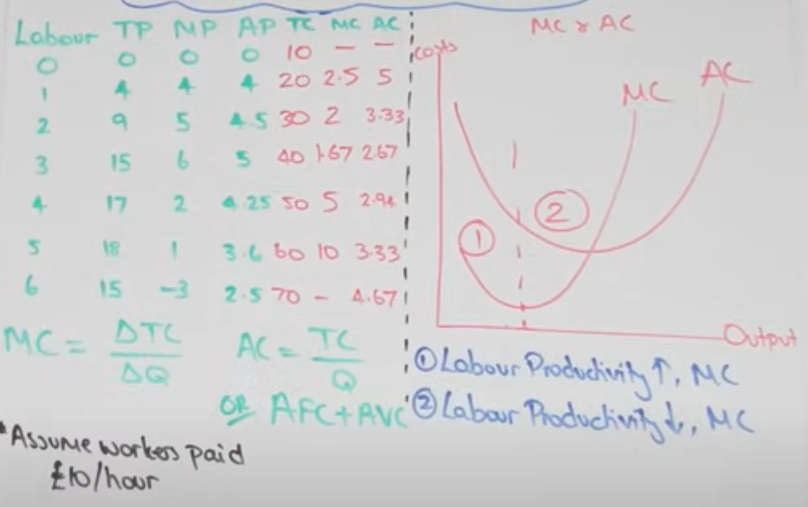 Labour TP MP AP TC MC AC
0 0 0 0 10 – –
1 4 4 4 20 2.5 5
2 9 5 4.5 30 2 3.33
3 15 6 5 40 1.67 2.67
4 17 2 4.25 50 5 2.94
5 18 1 3.6 60 10 3.33
6 15 -3 2.5 70 – 4.67
MC = ΔTC/ΔQ AC = TC/Q
OR AFC+AVC
*Assume workers paid
£10/hour
MC & AC
Costs
MC
AC
1
2
Output
① Labour Productivity ↑, MC
② Labour Productivity ↓, MC